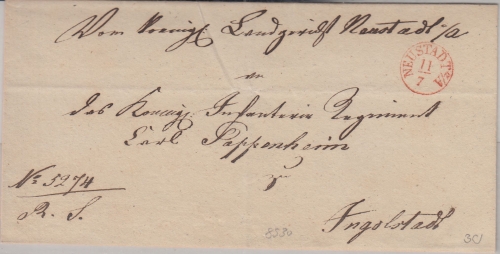 Vom königl. Landgericht Neustadt a/A
NEUSTADT a/A
11
7
an
das Koenigl. Infanterie Regiment
Carl Pappenheim
No 5274
R. S.
Ingolstadt